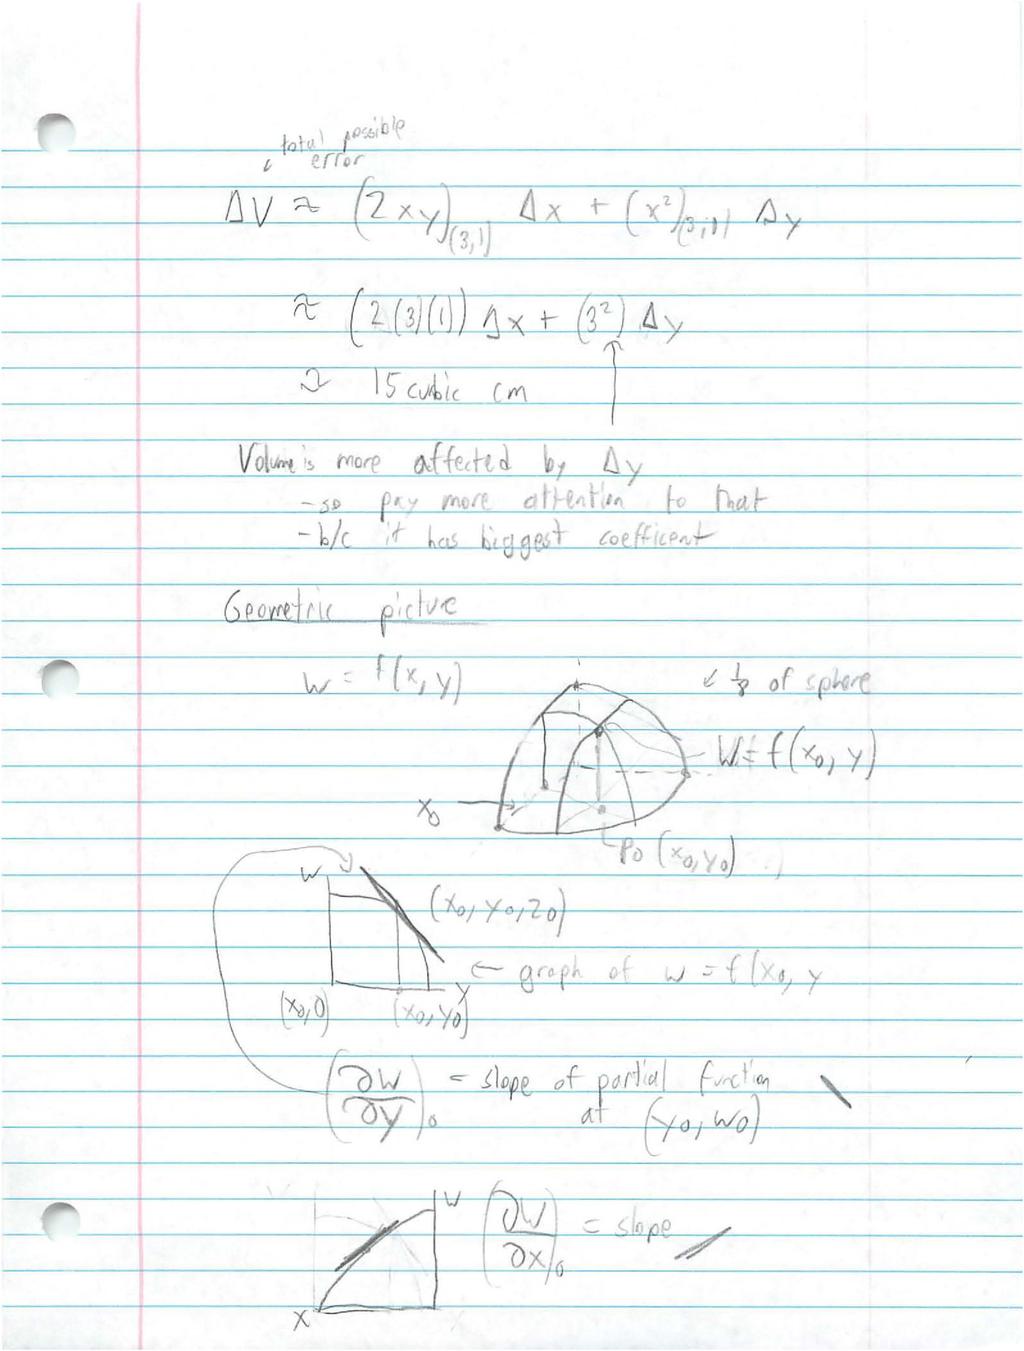 total possible
error
ΔV ≈ (2xy)(3,1) Δx + (x²)(3,1) Δy
≈ (2(3)(1)) Δx + (3²) Δy
≈ 15 cubic cm
Volume is more affected by Δy
- so pay more attention to that
- b/c it has biggest coefficent
Geometric picture
w = f(x, y)
↙ 1/8 of sphere
W = f(x₀, y)
x₀ →
P₀ (x₀, y₀)
W
(x₀, y₀, z₀)
← graph of w = f(x₀, y
y
(x₀, 0) (x₀, y₀)
(∂w/∂y)₀ = slope of partial function
at (y₀, w₀)
W (∂w/∂x)₀ = slope
x